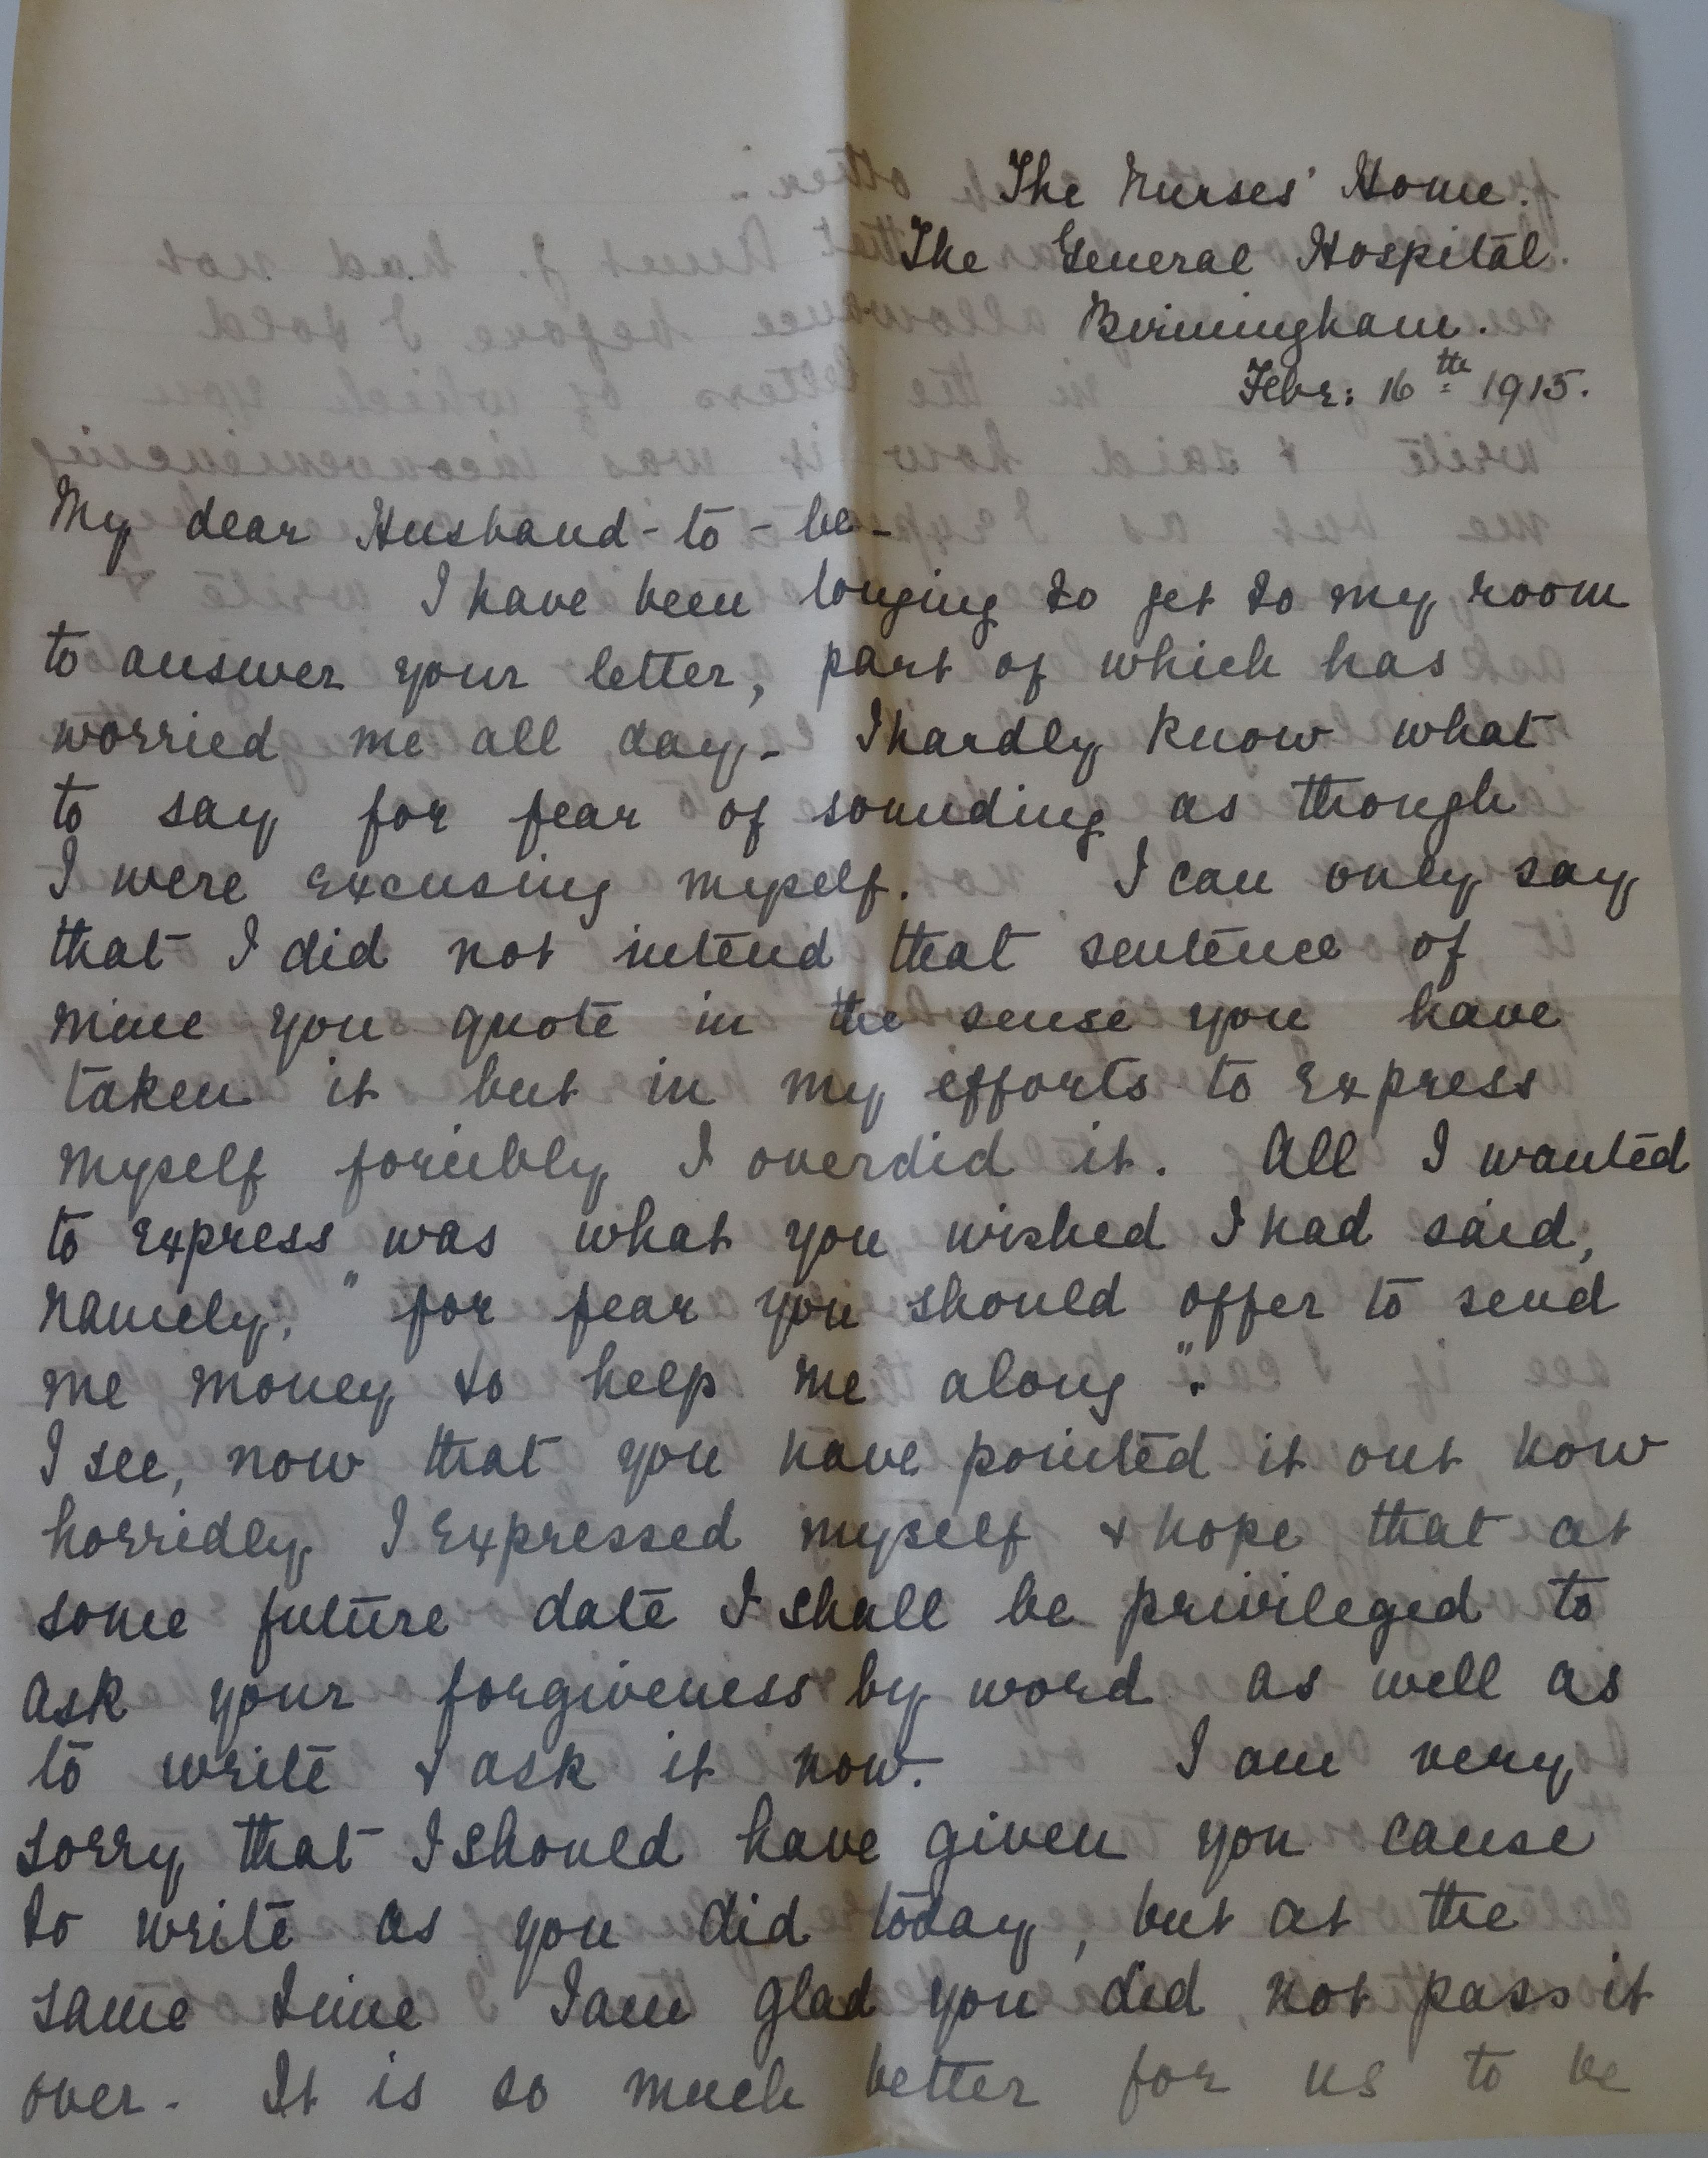 The Nurses' Home.
The General Hospital.
Birmingham.
Febr: 16th 1915.
My dear Husband-to-be-
I have been longing to get to my room
to answer your letter, part of which has
worried me all day. I hardly know what
to say for fear of sounding as though
I were excusing myself. I can only say
that I did not intend that sentence of
mine you quote in the sense you have
taken it but in my efforts to express
myself forcibly I overdid it. All I wanted
to express was what you wished I had said,
namely; "for fear you should offer to send
me money to help me along".
I see, now that you have pointed it out how
horridly I expressed myself & hope that at
some future date I shall be privileged to
ask your forgiveness by word as well as
to write & ask it now. I am very
sorry that I should have given you cause
to write as you did today, but at the
same time I am glad you did not pass it
over. It is so much better for us to be